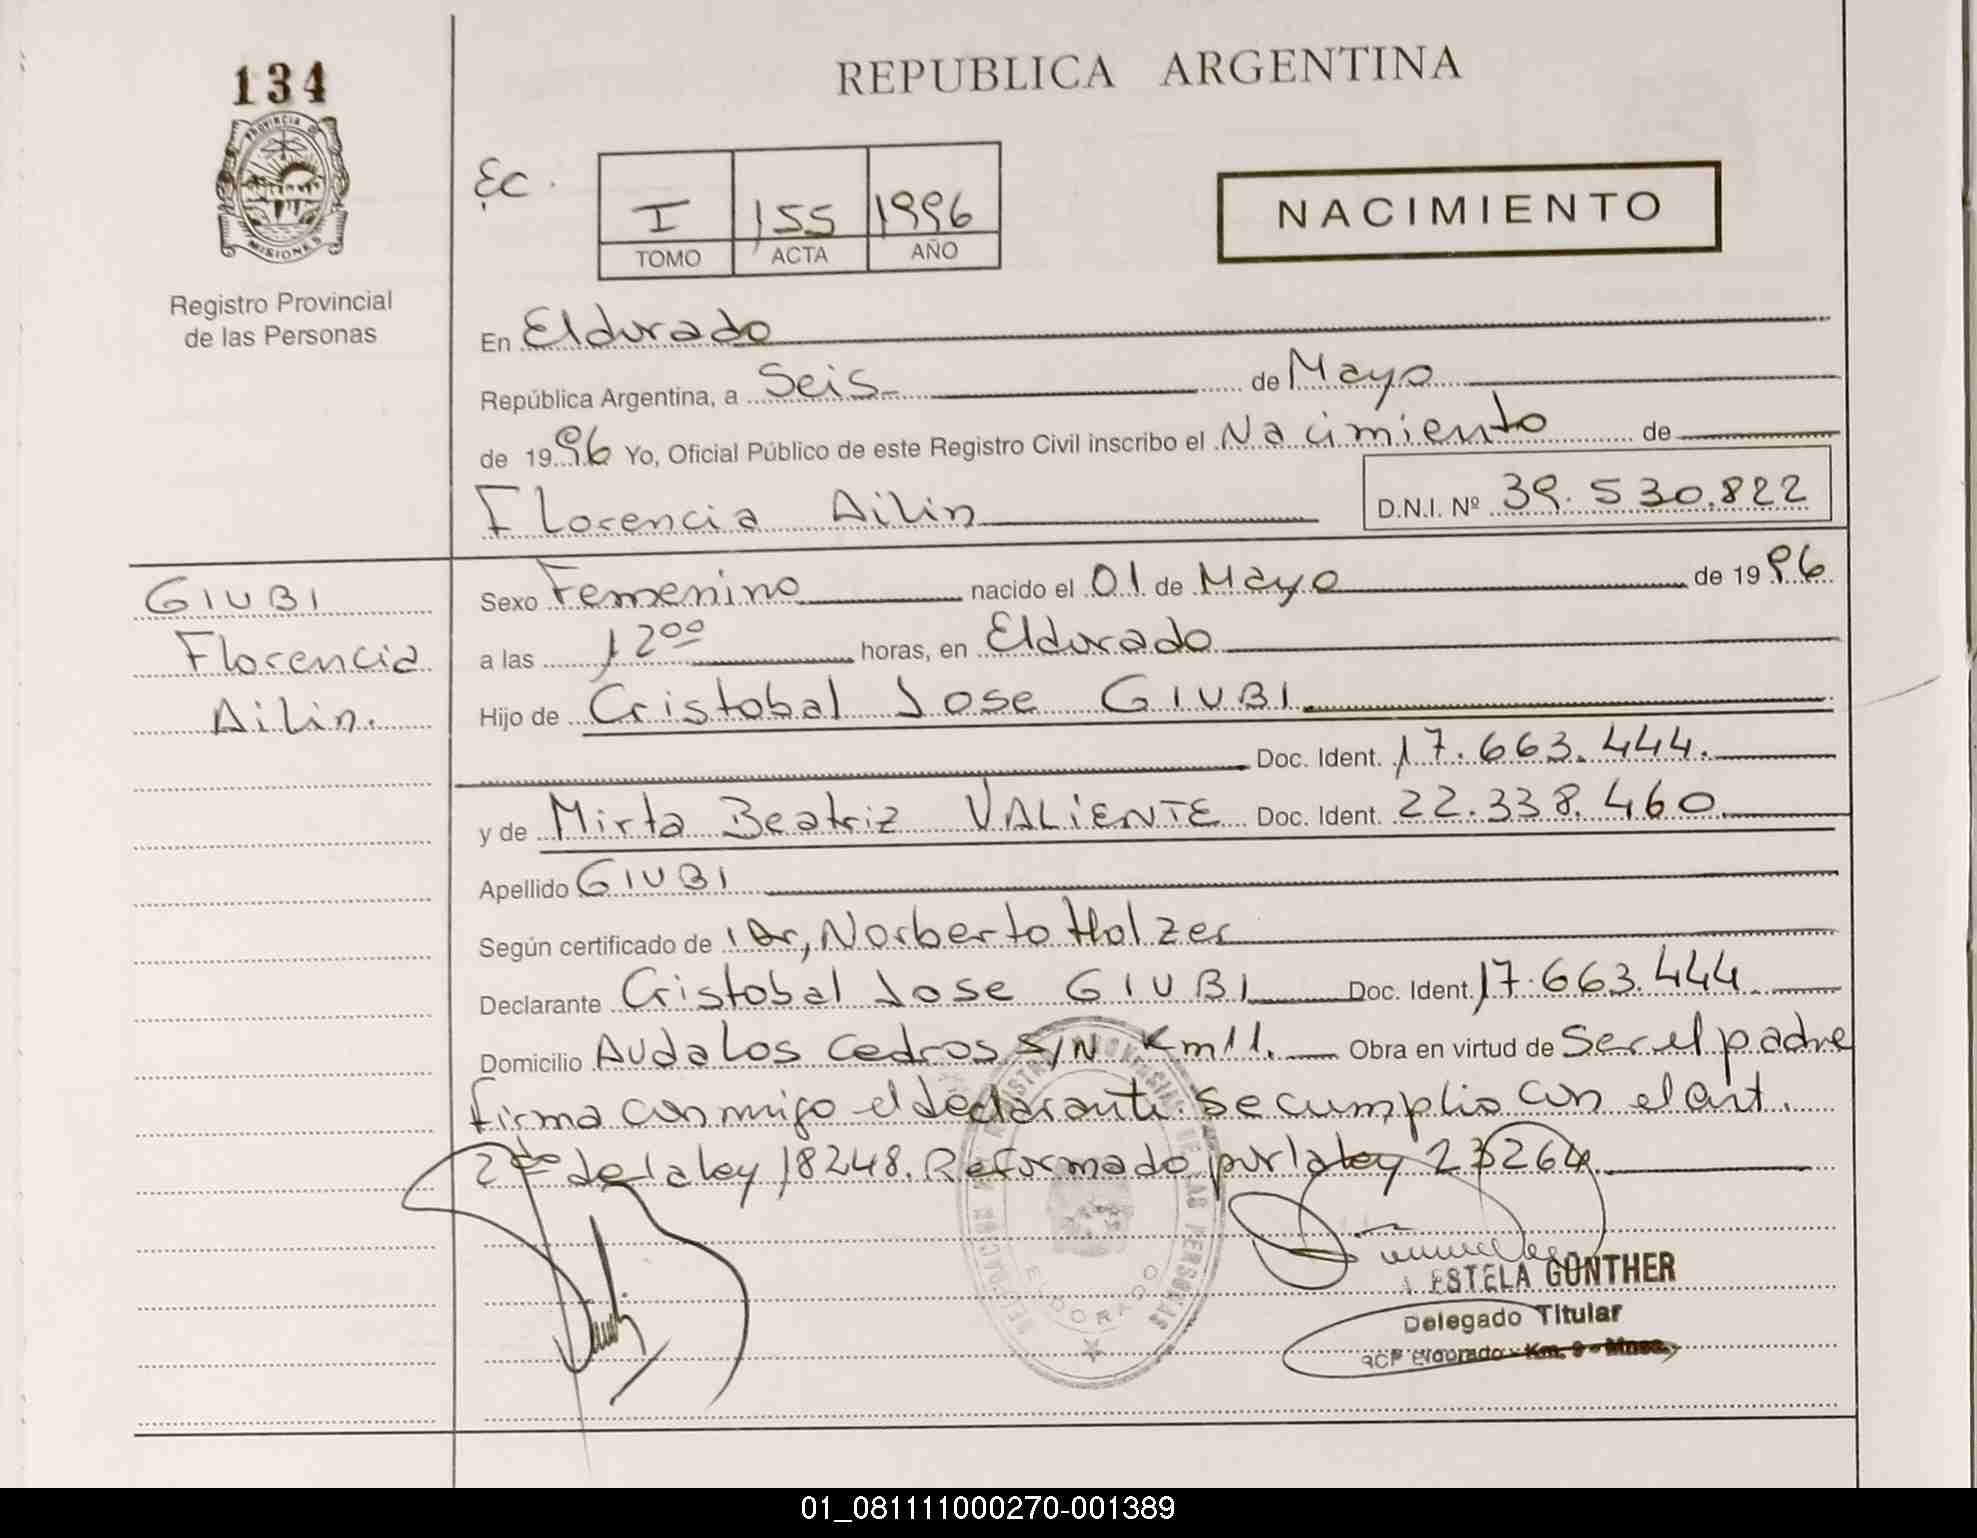 134
REPUBLICA ARGENTINA
PROVINCIA D
MISIONES
Registro Provincial
de las Personas
Ec.
I 155 1996
TOMO ACTA AÑO
NACIMIENTO
En Eldorado
República Argentina, a Seis de Mayo
de 1996 Yo, Oficial Público de este Registro Civil inscribo el Nacimiento de
Florencia Ailin D.N.I. Nº 39.530.822
GIUBI
Florencia
Ailin.
Sexo Femenino nacido el 01 de Mayo de 1996
a las 12ºº horas, en Eldorado
Hijo de Cristobal Jose GIUBI
Doc. Ident. 17.663.444.
y de Mirta Beatriz VALIENTE Doc. Ident. 22.338.460
Apellido GIUBI
Según certificado de Dr, Norberto Holzer
Declarante Cristobal Jose GIUBI Doc. Ident. 17.663.444
Domicilio Avda Los Cedros S/N Km 11. Obra en virtud de Ser el padre
firma conmigo el declarante. Se cumplio con el art.
2do de la ley 18248. Reformado por la ley 23264.
ELDORADO
ESTELA GUNTHER
Delegado Titular
RCP Eldorado - Km. 9 - Mnes.
01_081111000270-001389